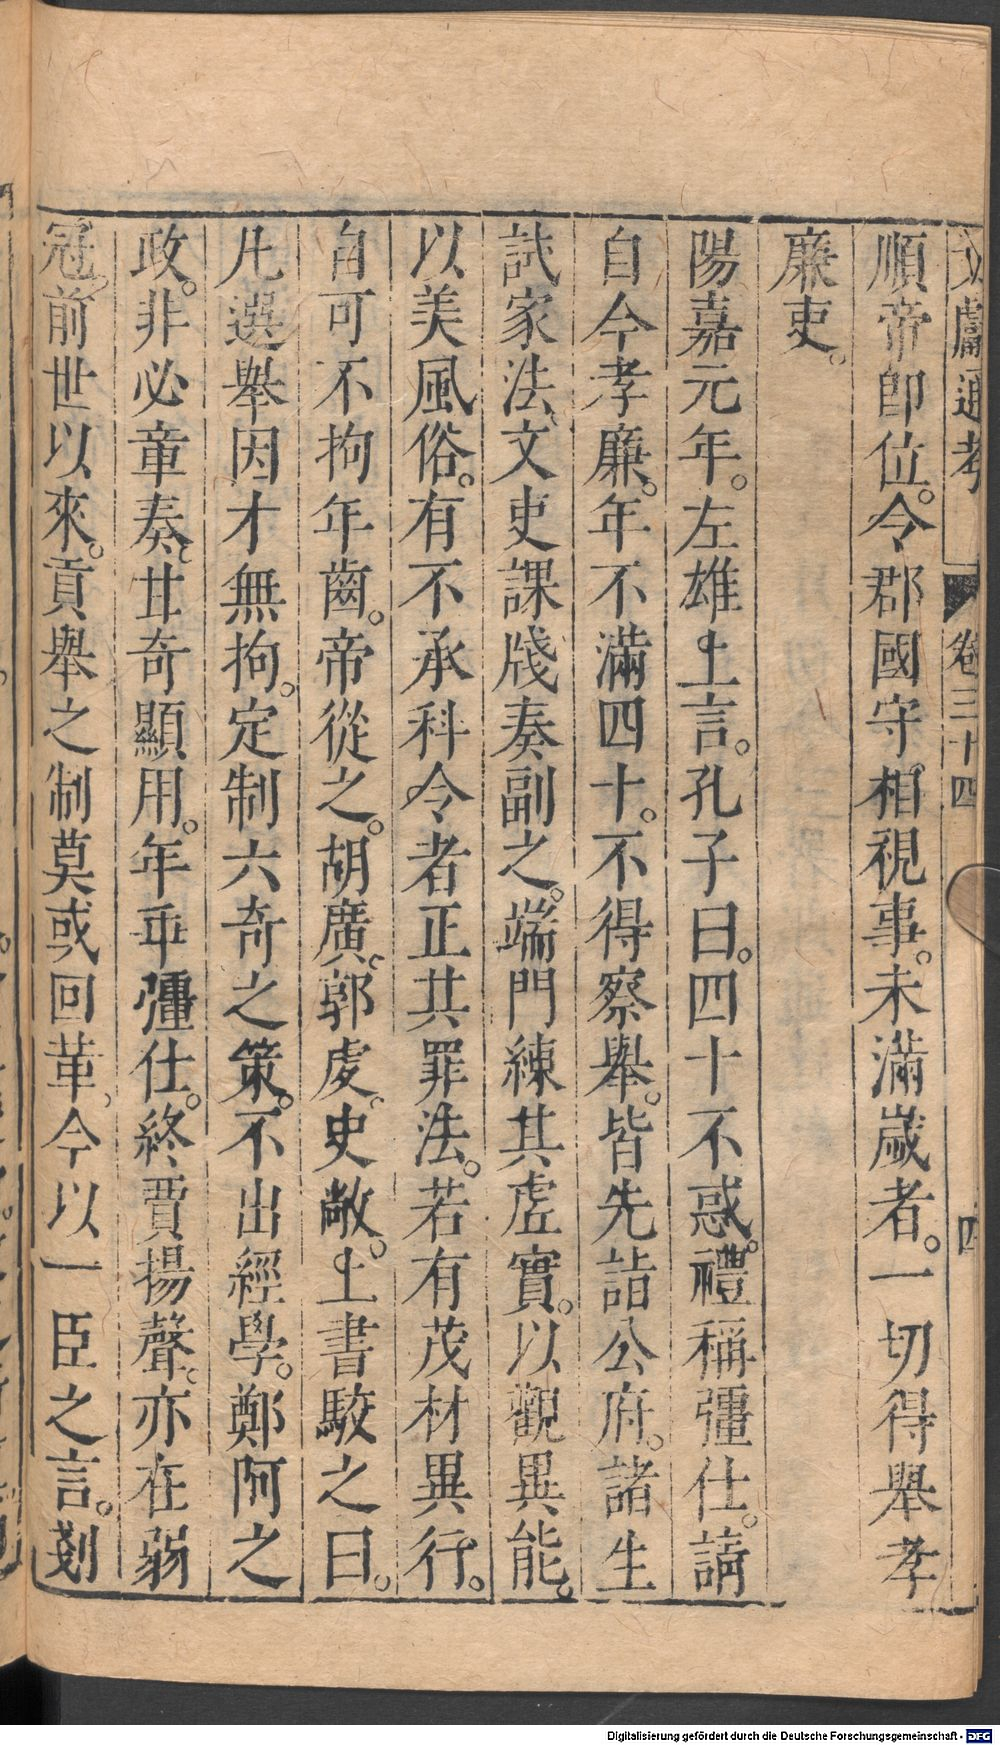 文獻通考 卷三十四 四
順帝即位。令郡國守。相視事。未滿歲者。一切得舉孝
廉吏。
陽嘉元年。左雄上言。孔子曰。四十不惑。禮稱彊仕。請
自今孝廉。年不滿四十。不得察舉。皆先詣公府。諸生
試家法。文吏課牋奏副之。端門練其虛實。以觀異能。
以美風俗。有不承科令者正其罪法。若有茂材異行。
自可不拘年齒。帝從之。胡廣。郭虔。史敞。上書駮之曰。
凡選舉因才無拘。定制六奇之策。不出經學。鄭阿之
政。非必章奏。甘奇顯用。年乖彊仕。終賈揚聲。亦在弱
冠。前世以來。貢舉之制莫或回革。今以一臣之言。剗
Digitalisierung gefördert durch die Deutsche Forschungsgemeinschaft - DFG